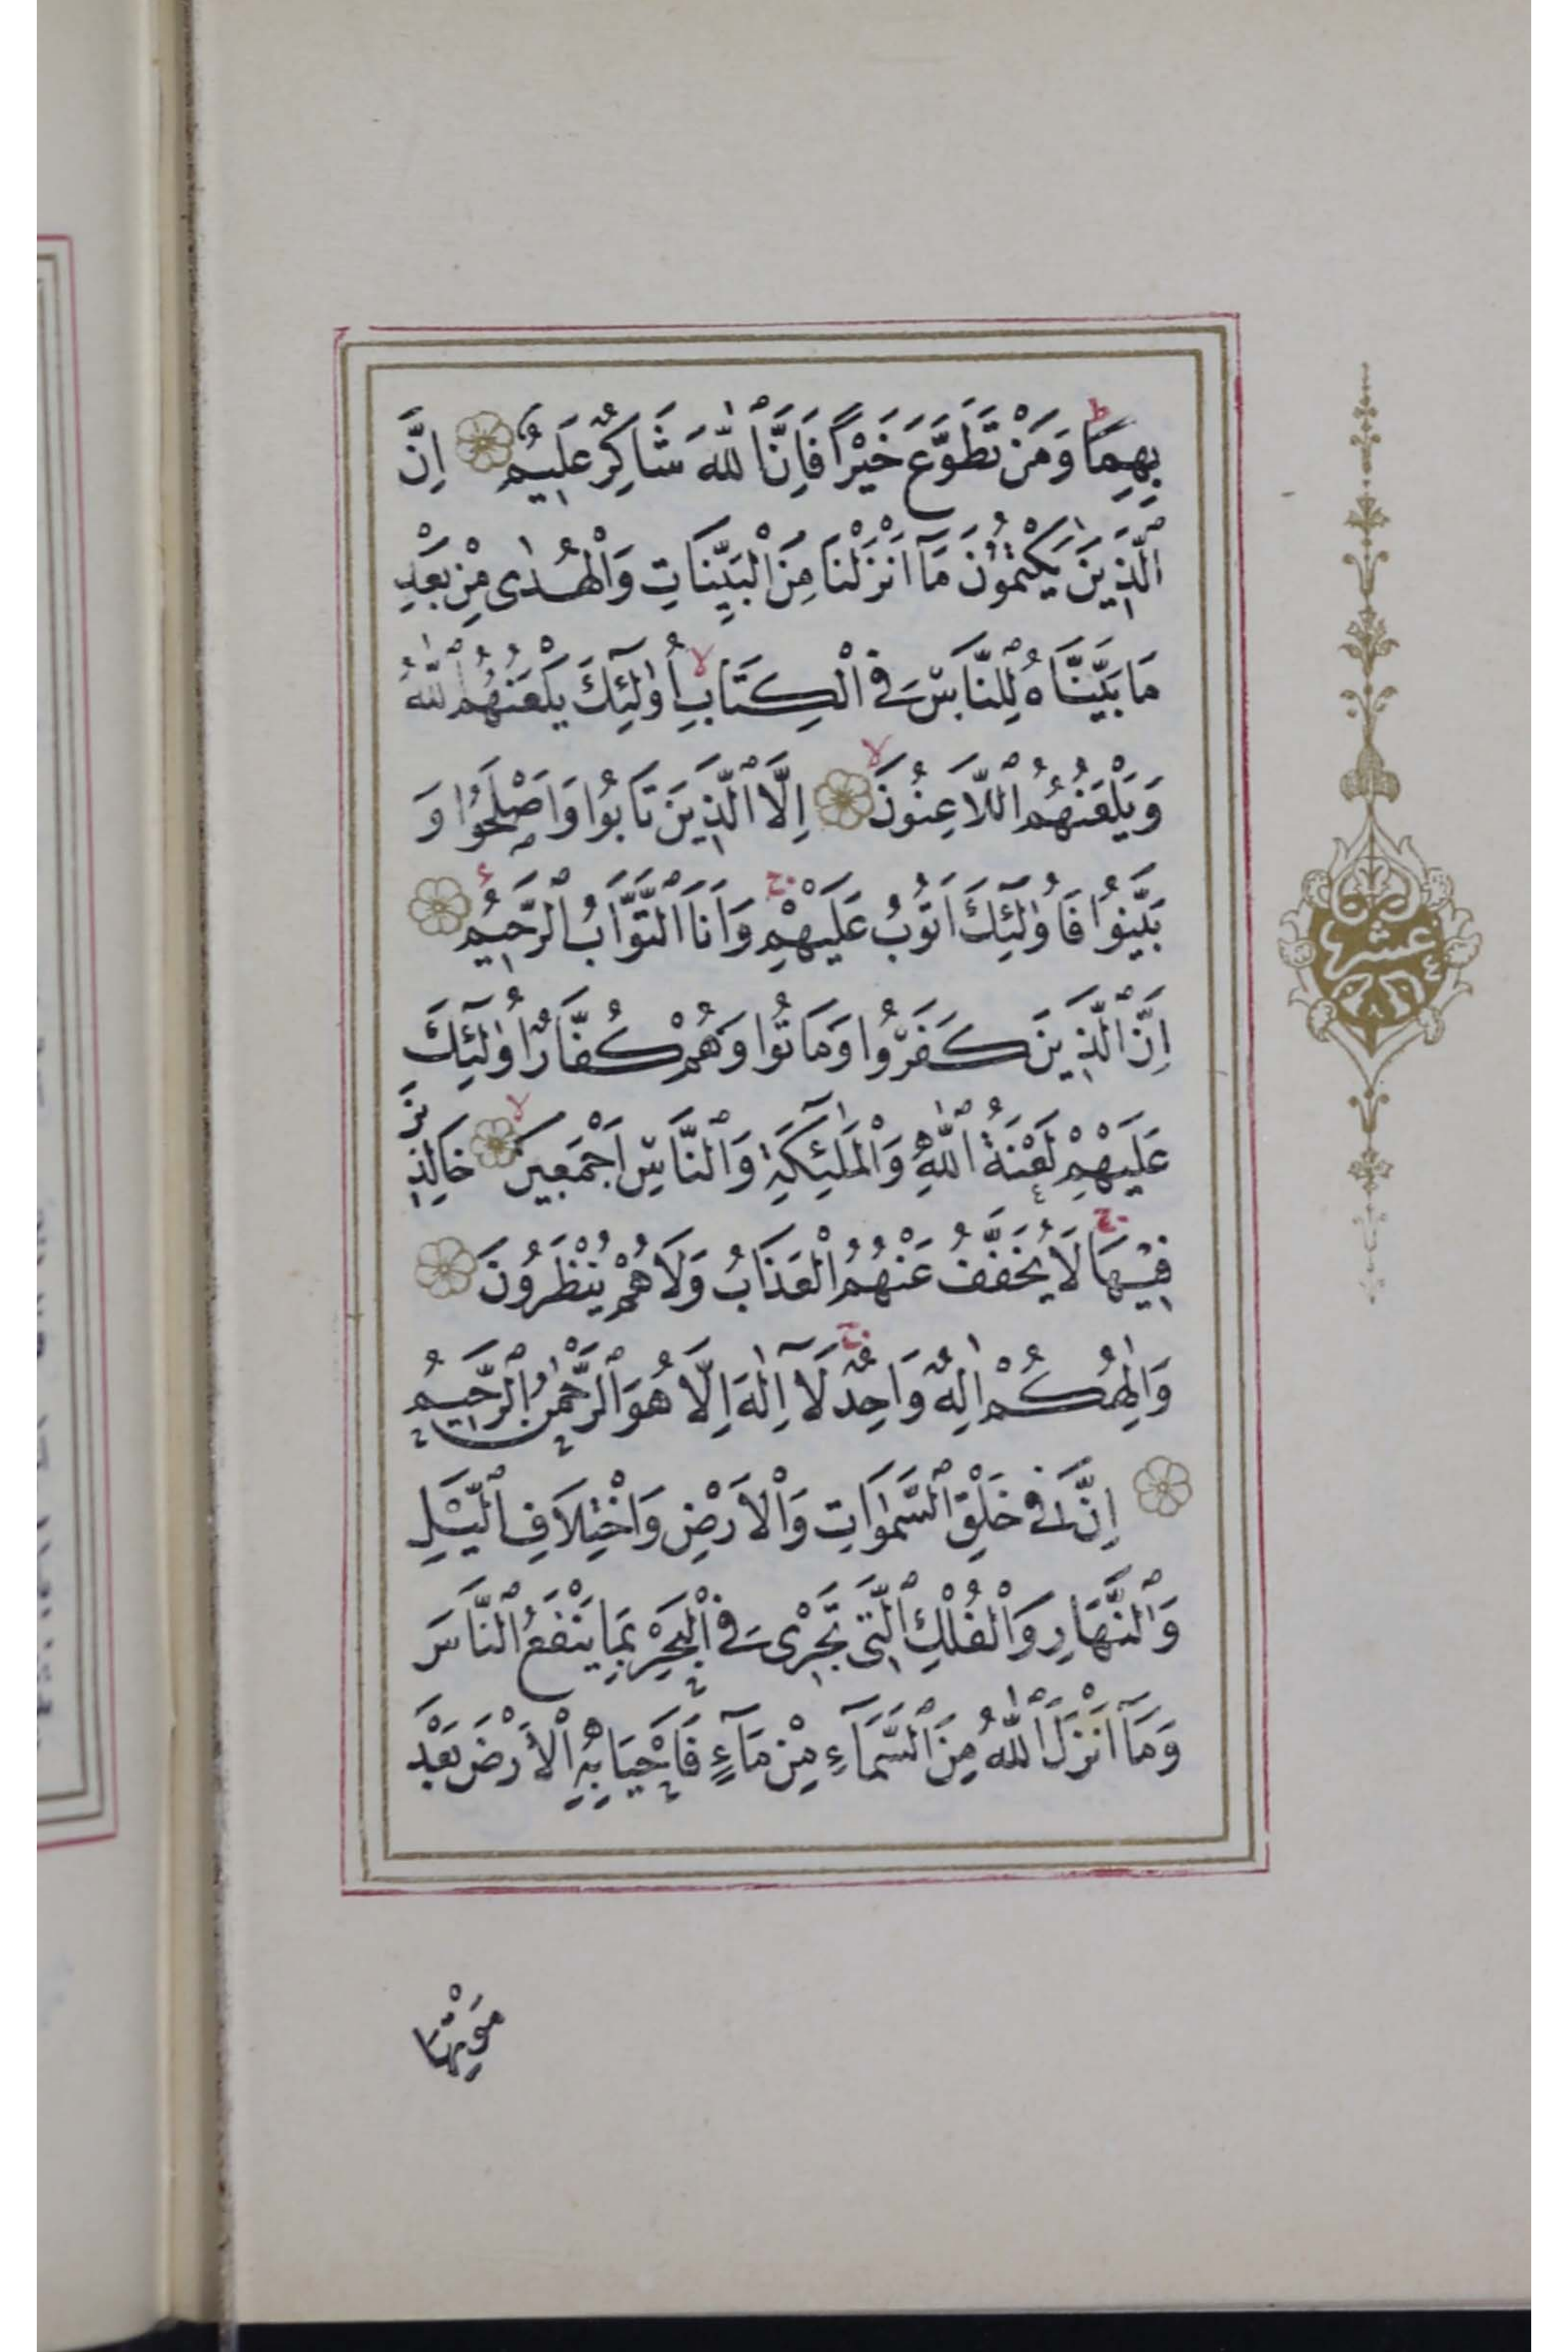 بِهِمَاۜ وَمَنْ تَطَوَّعَ خَيْرًا فَاِنَّ ٱللّٰهَ شَاكِرٌ عَلِيمٌ اِنَّ
ٱلَّذِينَ يَكْتُمُونَ مَآ اَنْزَلْنَا مِنَ ٱلْبَيِّنَاتِ وَٱلْهُدٰى مِنْ بَعْدِ
مَا بَيَّنَّاهُ لِلنَّاسِ فِى ٱلْكِتَابِ اُو۬لٰٓئِكَ يَلْعَنُهُمُ ٱللّٰهُ
وَيَلْعَنُهُمُ ٱللَّاعِنُونَ اِلَّا ٱلَّذِينَ تَابُوا وَاَصْلَحُوا وَ
بَيَّنُوا فَاُو۬لٰٓئِكَ اَتُوبُ عَلَيْهِمْ وَاَنَا ٱلتَّوَّابُ ٱلرَّحِيمُ
اِنَّ ٱلَّذِينَ كَفَرُوا وَمَاتُوا وَهُمْ كُفَّارٌ اُو۬لٰٓئِكَ
عَلَيْهِمْ لَعْنَةُ ٱللّٰهِ وَٱلْمَلٰٓئِكَةِ وَٱلنَّاسِ اَجْمَعِينَ خَالِدِينَ
فِيهَا لَا يُخَفَّفُ عَنْهُمُ ٱلْعَذَابُ وَلَا هُمْ يُنْظَرُونَ
وَاِلٰهُكُمْ اِلٰهٌ وَاحِدٌ لَآ اِلٰهَ اِلَّا هُوَ ٱلرَّحْمٰنُ ٱلرَّحِيمُ
اِنَّ فِى خَلْقِ ٱلسَّمٰوَاتِ وَٱلْاَرْضِ وَٱخْتِلَافِ ٱلَّيْلِ
وَٱلنَّهَارِ وَٱلْفُلْكِ ٱلَّتِى تَجْرِى فِى ٱلْبَحْرِ بِمَا يَنْفَعُ ٱلنَّاسَ
وَمَآ اَنْزَلَ ٱللّٰهُ مِنَ ٱلسَّمَآءِ مِنْ مَآءٍ فَاَحْيَا بِهِ ٱلْاَرْضَ بَعْدَ
مَوْتِهَا
عشر